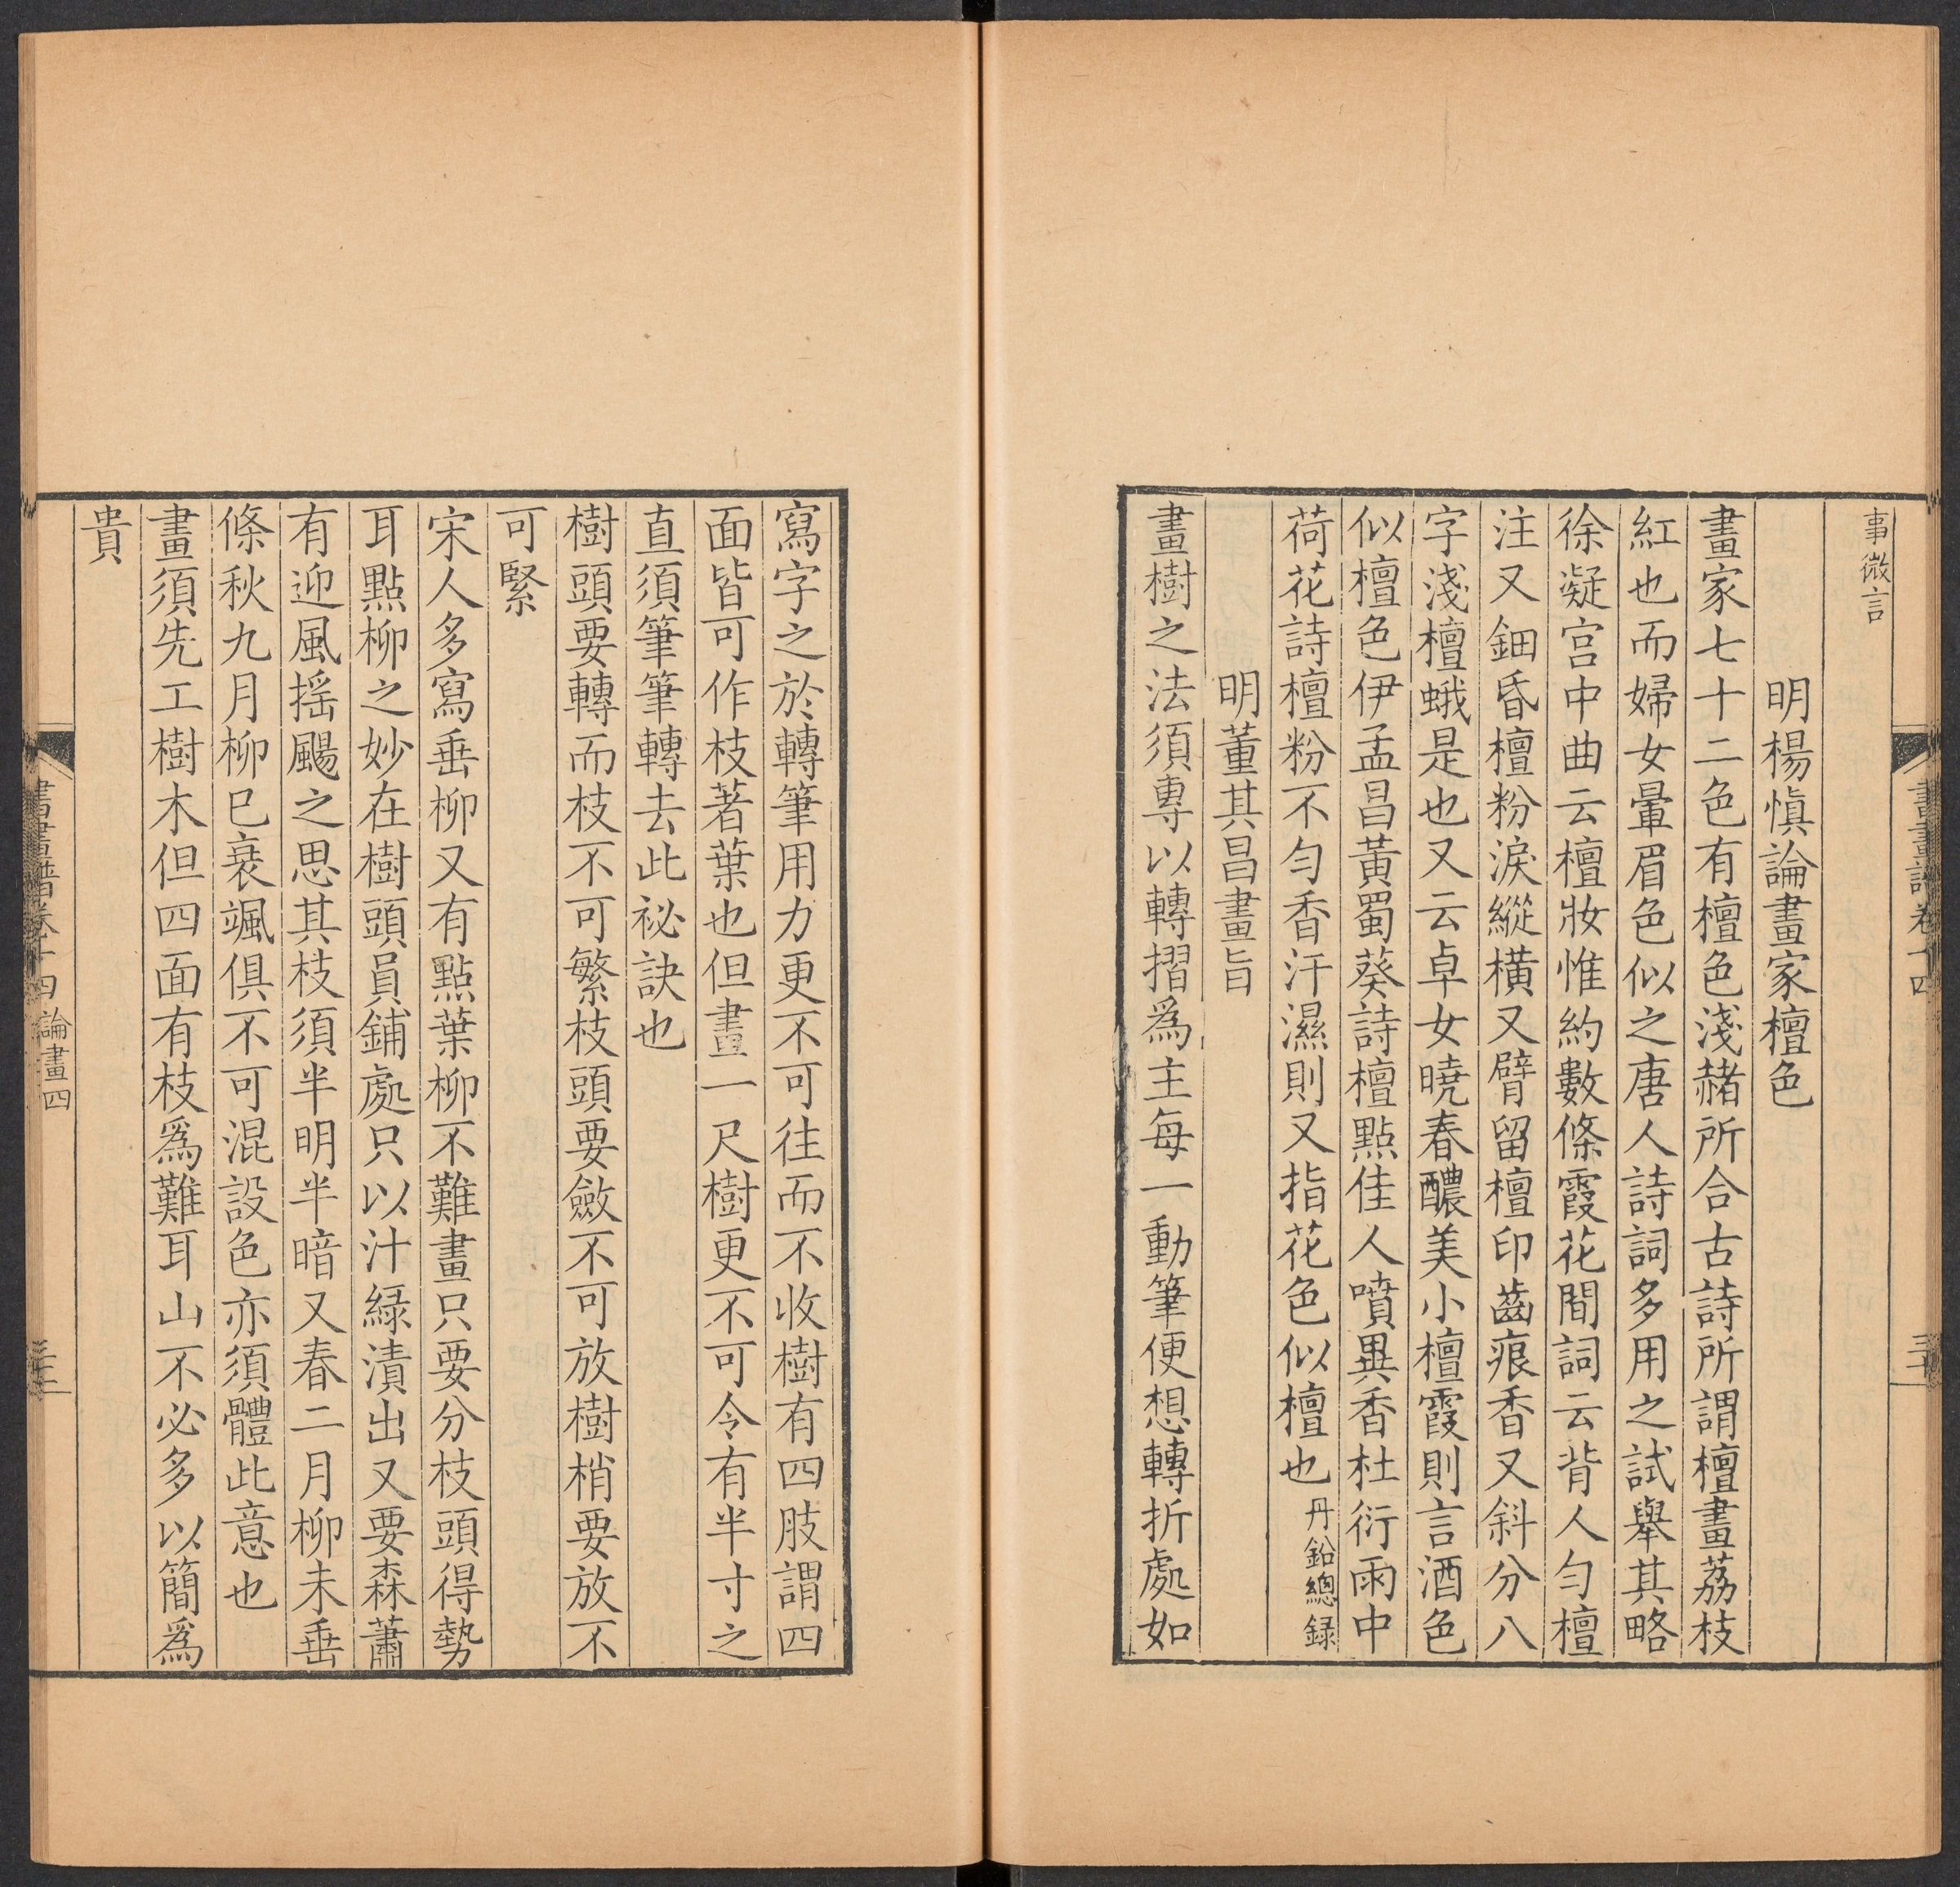 事微言
明楊慎論畫家檀色
畫家七十二色有檀色淺赭所合古詩所謂檀畫荔枝
紅也而婦女暈眉色似之唐人詩詞多用之試舉其略
徐凝宮中曲云檀妝惟約數條霞花間詞云背人勻檀
注又鈿昏檀粉淚縱橫又臂留檀印齒痕香又斜分八
字淺檀蛾是也又云卓女曉春醲美小檀霞則言酒色
似檀色伊孟昌黃蜀葵詩檀點佳人噴異香杜衍雨中
荷花詩檀粉不勻香汗濕則又指花色似檀也丹鉛總録
明董其昌畫旨
畫樹之法須專以轉摺爲主每一動筆便想轉折處如
寫字之於轉筆用力更不可往而不收樹有四肢謂四
面皆可作枝著葉也但畫一尺樹更不可令有半寸之
直須筆筆轉去此祕訣也
樹頭要轉而枝不可繁枝頭要斂不可放樹梢要放不
可緊
宋人多寫垂柳又有點葉柳不難畫只要分枝頭得勢
耳點柳之妙在樹頭員鋪處只以汁緑漬出又要森蕭
有迎風搖颺之思其枝須半明半暗又春二月柳未垂
條秋九月柳已衰颯俱不可混設色亦須體此意也
畫須先工樹木但四面有枝爲難耳山不必多以簡爲
貴
書畫譜卷十四 論畫四